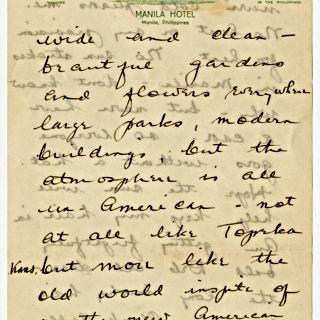 MANILA HOTEL
Manila, Philippines
wide and clean —
beautiful gardens
and flowers everywhere
large parks, modern
buildings, but the
atmosphere is all
un American - not
at all like Topeka
Kans. but more like the
old world inspite of
the new American